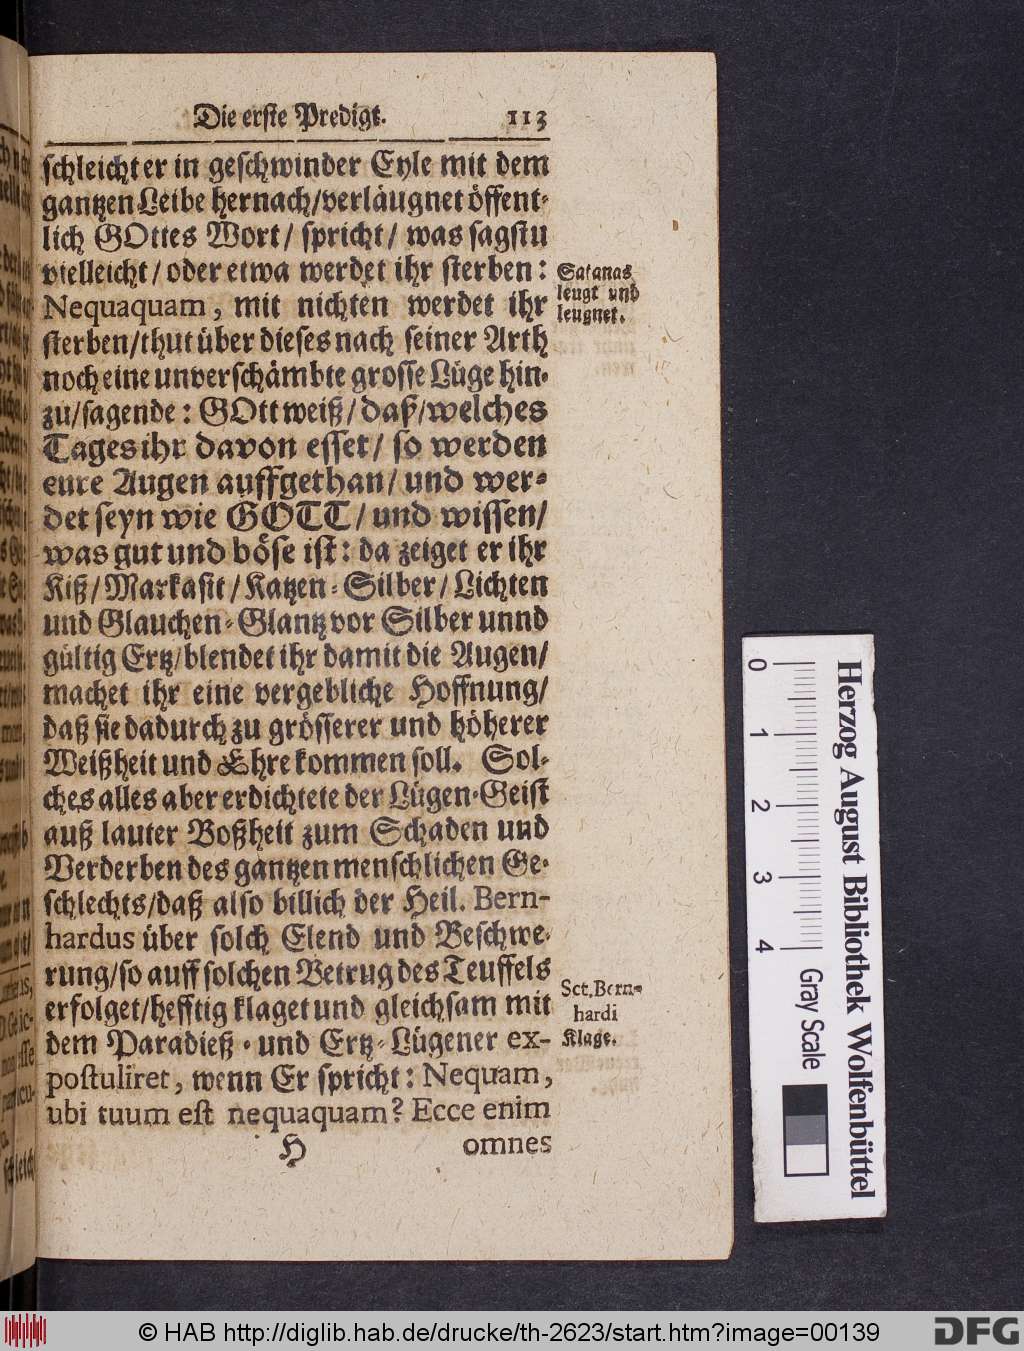 Die erste Predigt. 113
schleicht er in geschwinder Eyle mit dem
gantzen Leibe hernach/verläugnet öffent-
lich GOttes Wort/ spricht/ was sagstu
vielleicht/ oder etwa werdet ihr sterben:
Nequaquam, mit nichten werdet ihr
sterben/thut über dieses nach seiner Arth
noch eine unverschämbte grosse Lüge hin-
zu/sagende: GOtt weiß/ daß/welches
Tages ihr davon esset/ so werden
eure Augen auffgethan/ und wer-
det seyn wie GOTT/ und wissen/
was gut und böse ist: da zeiget er ihr
Kiß/ Markasit/ Katzen-Silber/ Lichten
und Glauchen-Glantz vor Silber unnd
gültig Ertz/blendet ihr damit die Augen/
machet ihr eine vergebliche Hoffnung/
daß sie dadurch zu grösserer und höherer
Weißheit und Ehre kommen soll. Sol-
ches alles aber erdichtete der Lügen-Geist
auß lauter Boßheit zum Schaden und
Verderben des gantzen menschlichen Ge-
schlechts/daß also billich der Heil. Bern-
hardus über solch Elend und Beschwe-
rung/so auff solchen Betrug des Teuffels
erfolget/hefftig klaget und gleichsam mit
dem Paradieß- und Ertz-Lügener ex-
postuliret, wenn Er spricht: Nequam,
ubi tuum est nequaquam? Ecce enim
H omnes
Satanas
leugt und
leugnet.
Sct. Bern-
hardi
Klage.
0 1 2 3 4
Gray Scale
Herzog August Bibliothek Wolfenbüttel
© HAB http://diglib.hab.de/drucke/th-2623/start.htm?image=00139
DFG